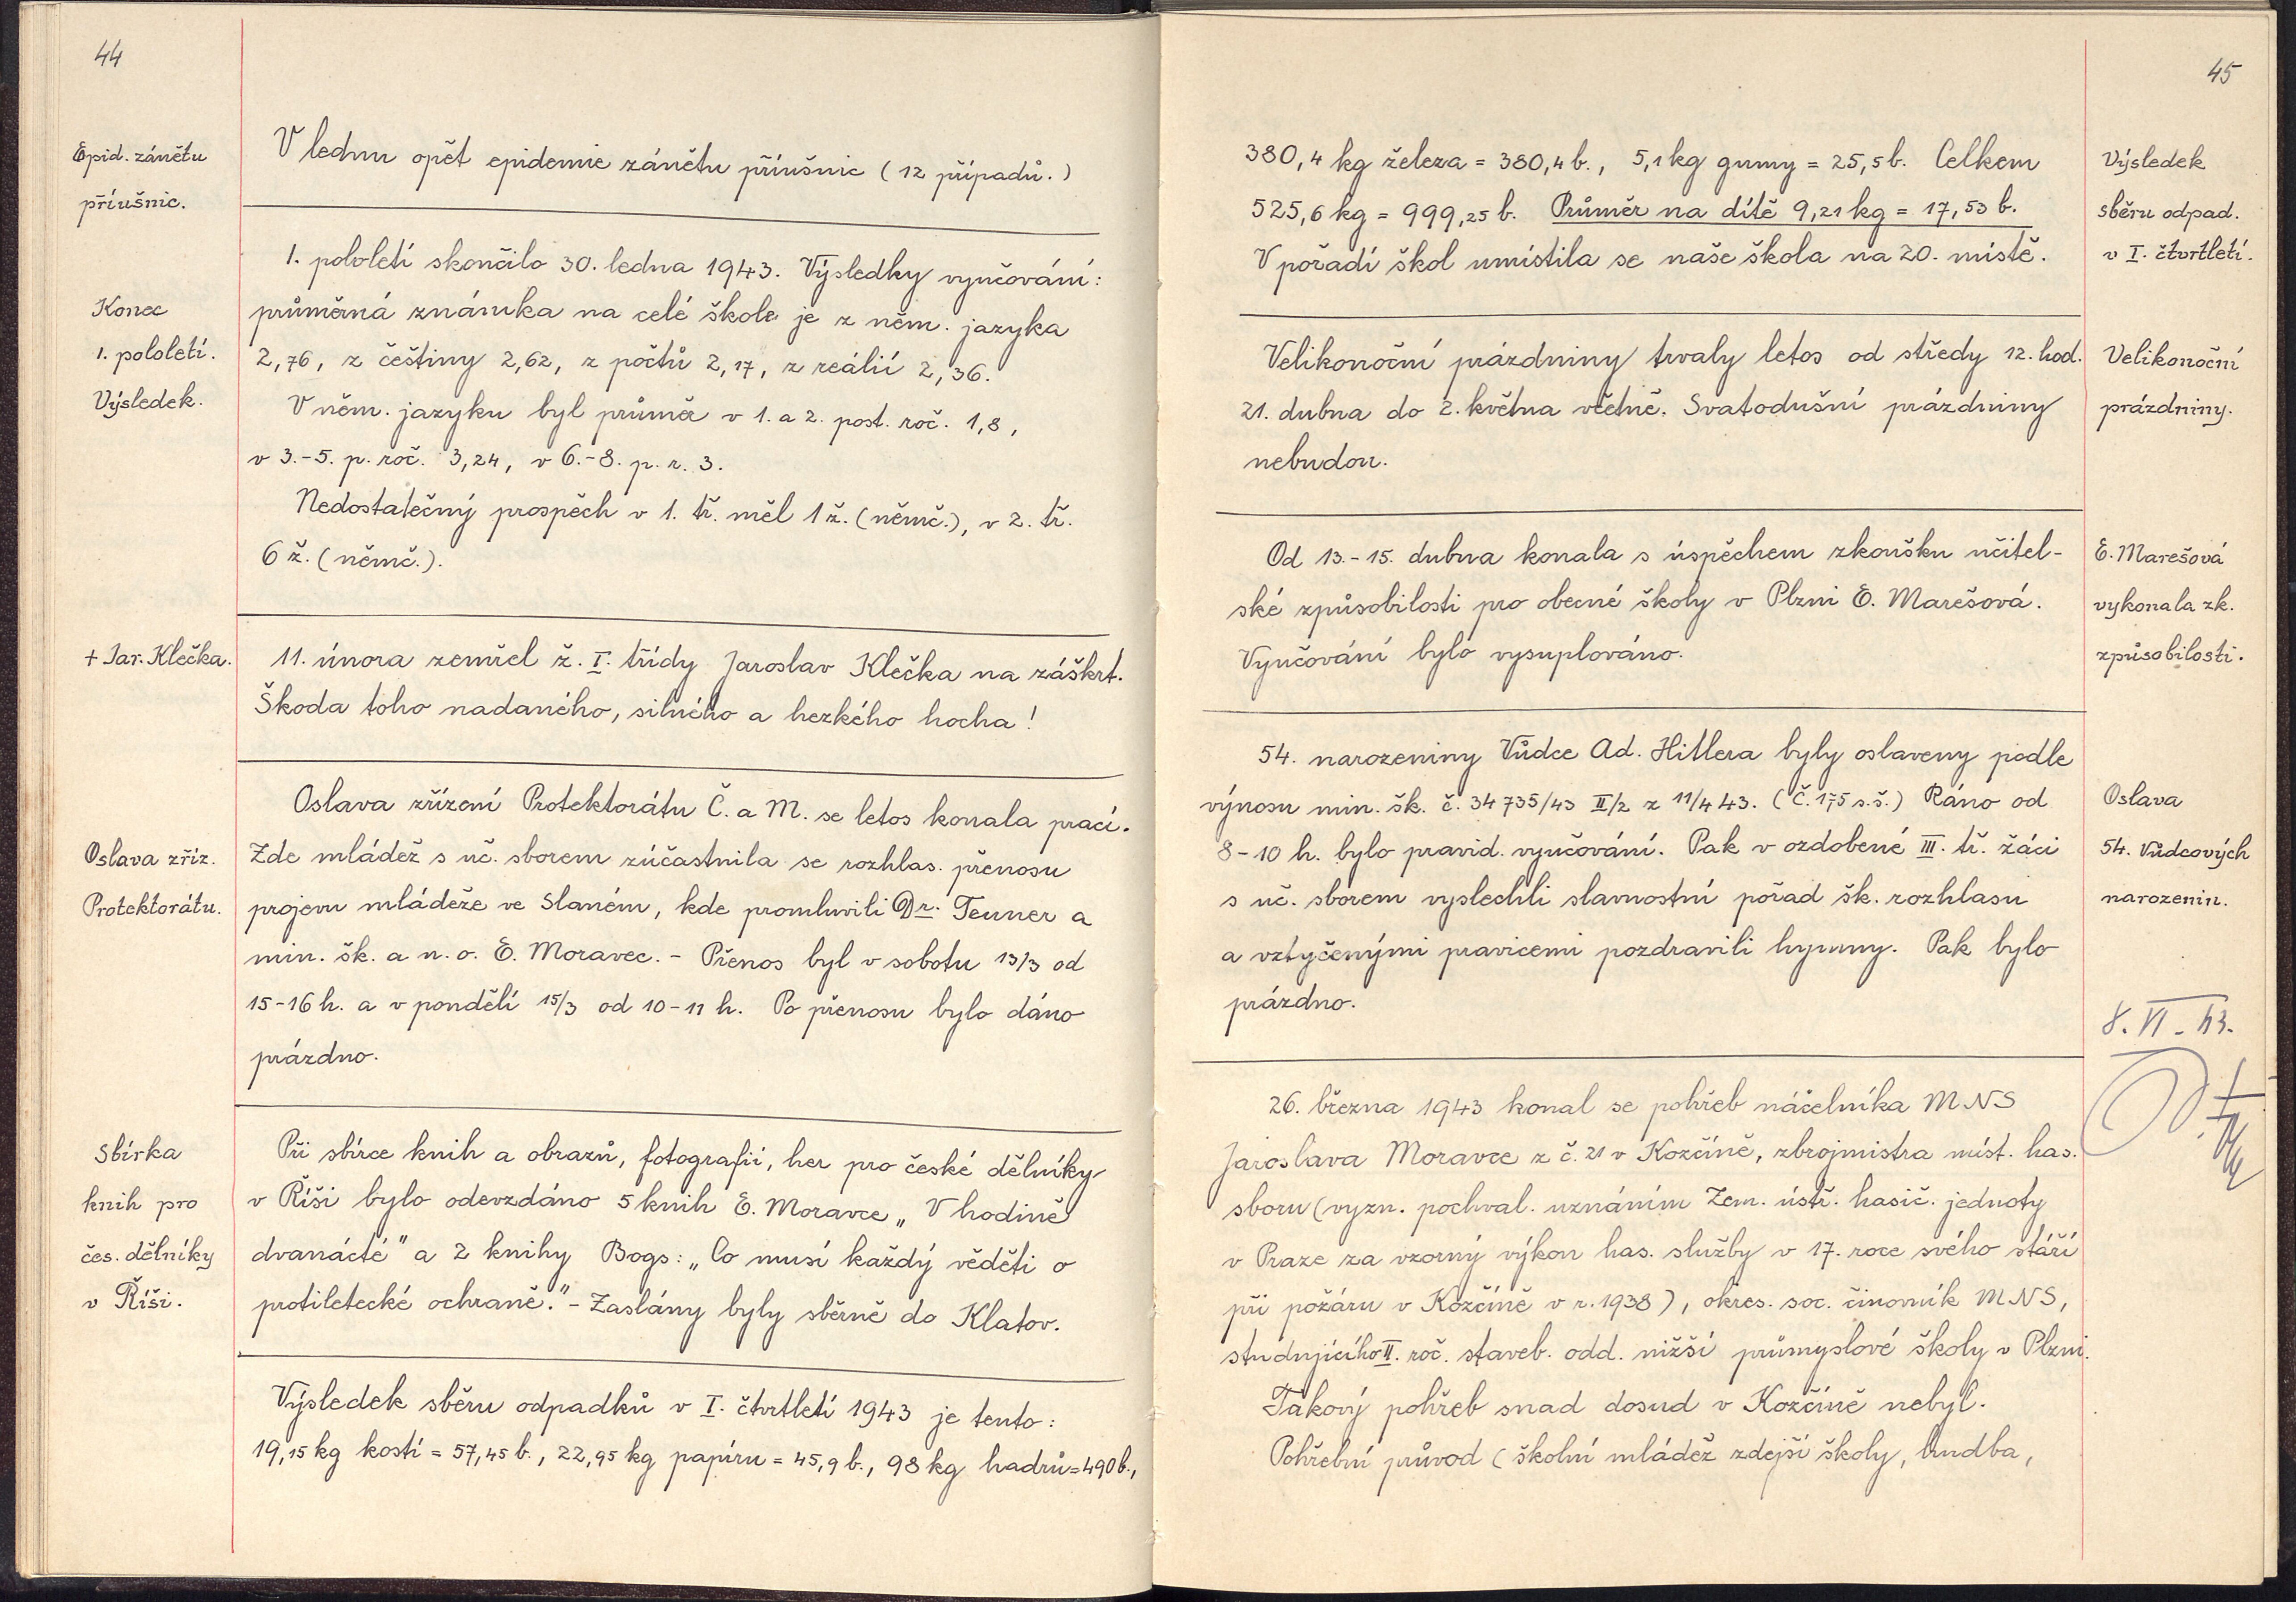 44
Epid. zánětu
příušnic.
V lednu opět epidemie zánětu příušnic (12 případů.)
Konec
1. pololetí.
Výsledek.
1. pololetí skončilo 30. ledna 1943. Výsledky vyučování:
průměrná známka na celé škole je z něm. jazyka
2,76, z češtiny 2,62, z počtů 2,17, z reálií 2,36.
V něm. jazyku byl průměr v 1. a 2. post. roč. 1,8,
v 3.-5. p. roč. 3,24, v 6.-8. p. r. 3.
Nedostatečný prospěch v 1. tř. měl 1 ž. (němč.), v 2. tř.
6 ž. (němč.).
+ Jar. Klečka.
11. února zemřel ž. I. třídy Jaroslav Klečka na záškrt.
Škoda toho nadaného, silného a hezkého hocha!
Oslava zříz.
Protektorátu.
Oslava zřízení Protektorátu Č. a M. se letos konala prací.
Zde mládež s uč. sborem zúčastnila se rozhlas. přenosu
projevu mládeže ve Slaném, kde promluvili Dr. Teuner a
min. šk. a n. o. E. Moravec. - Přenos byl v sobotu 13/3 od
15-16 h. a v pondělí 15/3 od 10-11 h. Po přenosu bylo dáno
prázdno.
Sbírka
knih pro
čes. dělníky
v Říši.
Při sbírce knih a obrazů, fotografií, her pro české dělníky
v Říši bylo odevzdáno 5 knih E. Moravce „V hodině
dvanácté" a 2 knihy Bogs: „Co musí každý věděti o
protiletecké ochraně." - Zaslány byly sběrně do Klatov.
Výsledek sběru odpadků v I. čtvrtletí 1943 je tento:
19,15 kg kostí = 57,45 b., 22,95 kg papíru = 45,9 b., 98 kg hadrů = 490 b.,
45
380,4 kg železa = 380,4 b., 5,1 kg gumy = 25,5 b. Celkem
525,6 kg = 999,25 b. Průměr na dítě 9,21 kg = 17,53 b.
V pořadí škol umístila se naše škola na 20. místě.
Výsledek
sběru odpad.
v I. čtvrtletí.
Velikonoční prázdniny trvaly letos od středy 12. hod.
21. dubna do 2. května včetně. Svatodušní prázdniny
nebudou.
Velikonoční
prázdniny.
Od 13.-15. dubna konala s úspěchem zkoušku učitel-
ské způsobilosti pro obecné školy v Plzni E. Marešová.
Vyučování bylo vysuplováno.
E. Marešová
vykonala zk.
způsobilosti.
54. narozeniny Vůdce Ad. Hitlera byly oslaveny podle
výnosu min. šk. č. 34735/43 II/2 z 11/4 43. (Č. 175 s.š.) Ráno od
8-10 h. bylo pravid. vyučování. Pak v ozdobené III. tř. žáci
s uč. sborem vyslechli slavnostní pořad šk. rozhlasu
a vztyčenými pravicemi pozdravili hymny. Pak bylo
prázdno.
Oslava
54. Vůdcových
narozenin.
8. VI. 43.
26. března 1943 konal se pohřeb náčelníka MNS
Jaroslava Moravce z č. 21 v Kozčíně, zbrojmistra míst. has.
sboru (vyzn. pochval. uznáním Zem. ústř. hasič. jednoty
v Praze za vzorný výkon has. služby v 17. roce svého stáří
při požáru v Kozčíně v r. 1938), okres. soc. činovník MNS,
studujícího II. roč. staveb. odd. nižší průmyslové školy v Plzni.
Takový pohřeb snad dosud v Kozčíně nebyl.
Pohřební průvod (školní mládež zdejší školy, hudba,